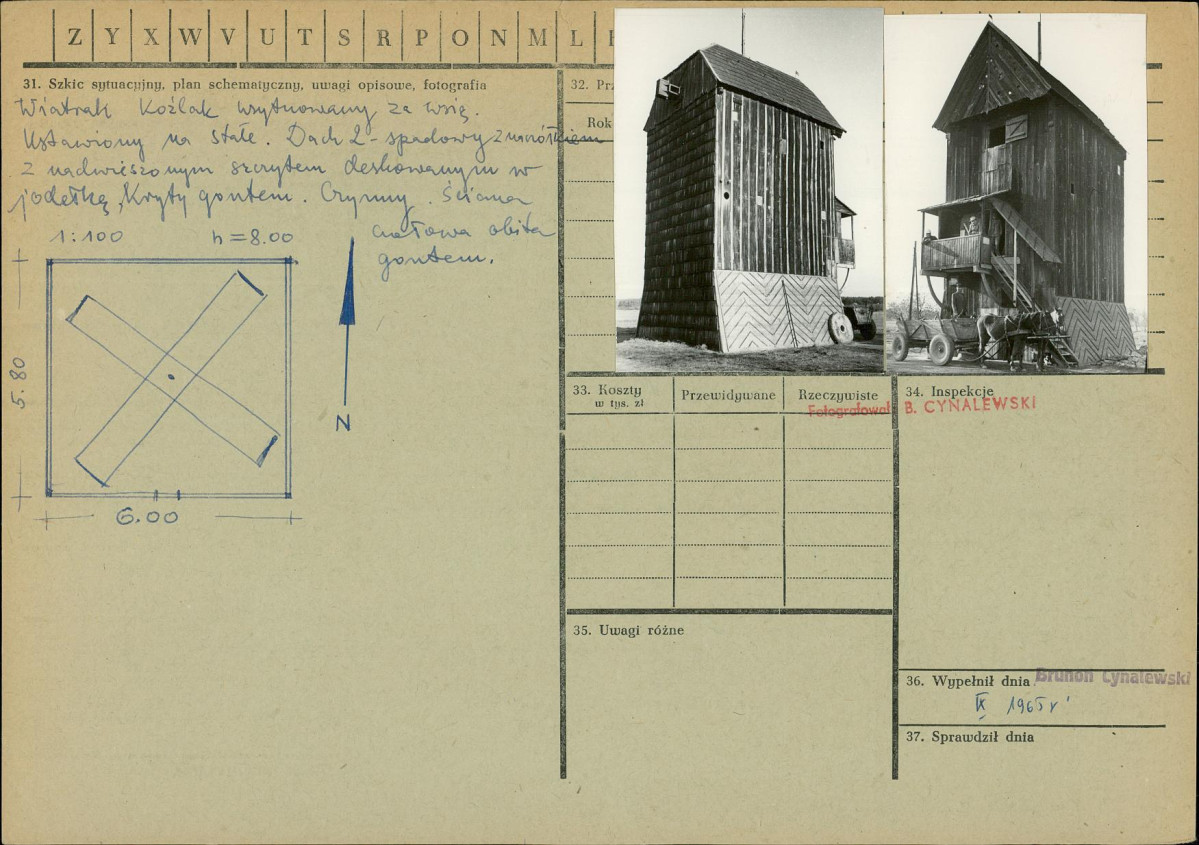 Z Y X W V U T S R P O N M L
31. Szkic sytuacyjny, plan schematyczny, uwagi opisowe, fotografia
Wiatrak Koźlak usytuowany za wsią.
Ustawiony na stałe. Dach 2-spadowy z naczółkiem
z nadwieszonym szczytem deskowanym w
jodełkę, Kryty gontem. Czynny. Ściana
czołowa obita
gontem.
1:100 h=8.00
5.80
6.00
N
32.
Rok
33. Koszty
w tys. zł
Przewidywane
Rzeczywiste
Fotografował B. CYNALEWSKI
34. Inspekcje
35. Uwagi różne
36. Wypełnił dnia Brunon Cynalewski
IX 1965 r
37. Sprawdził dnia